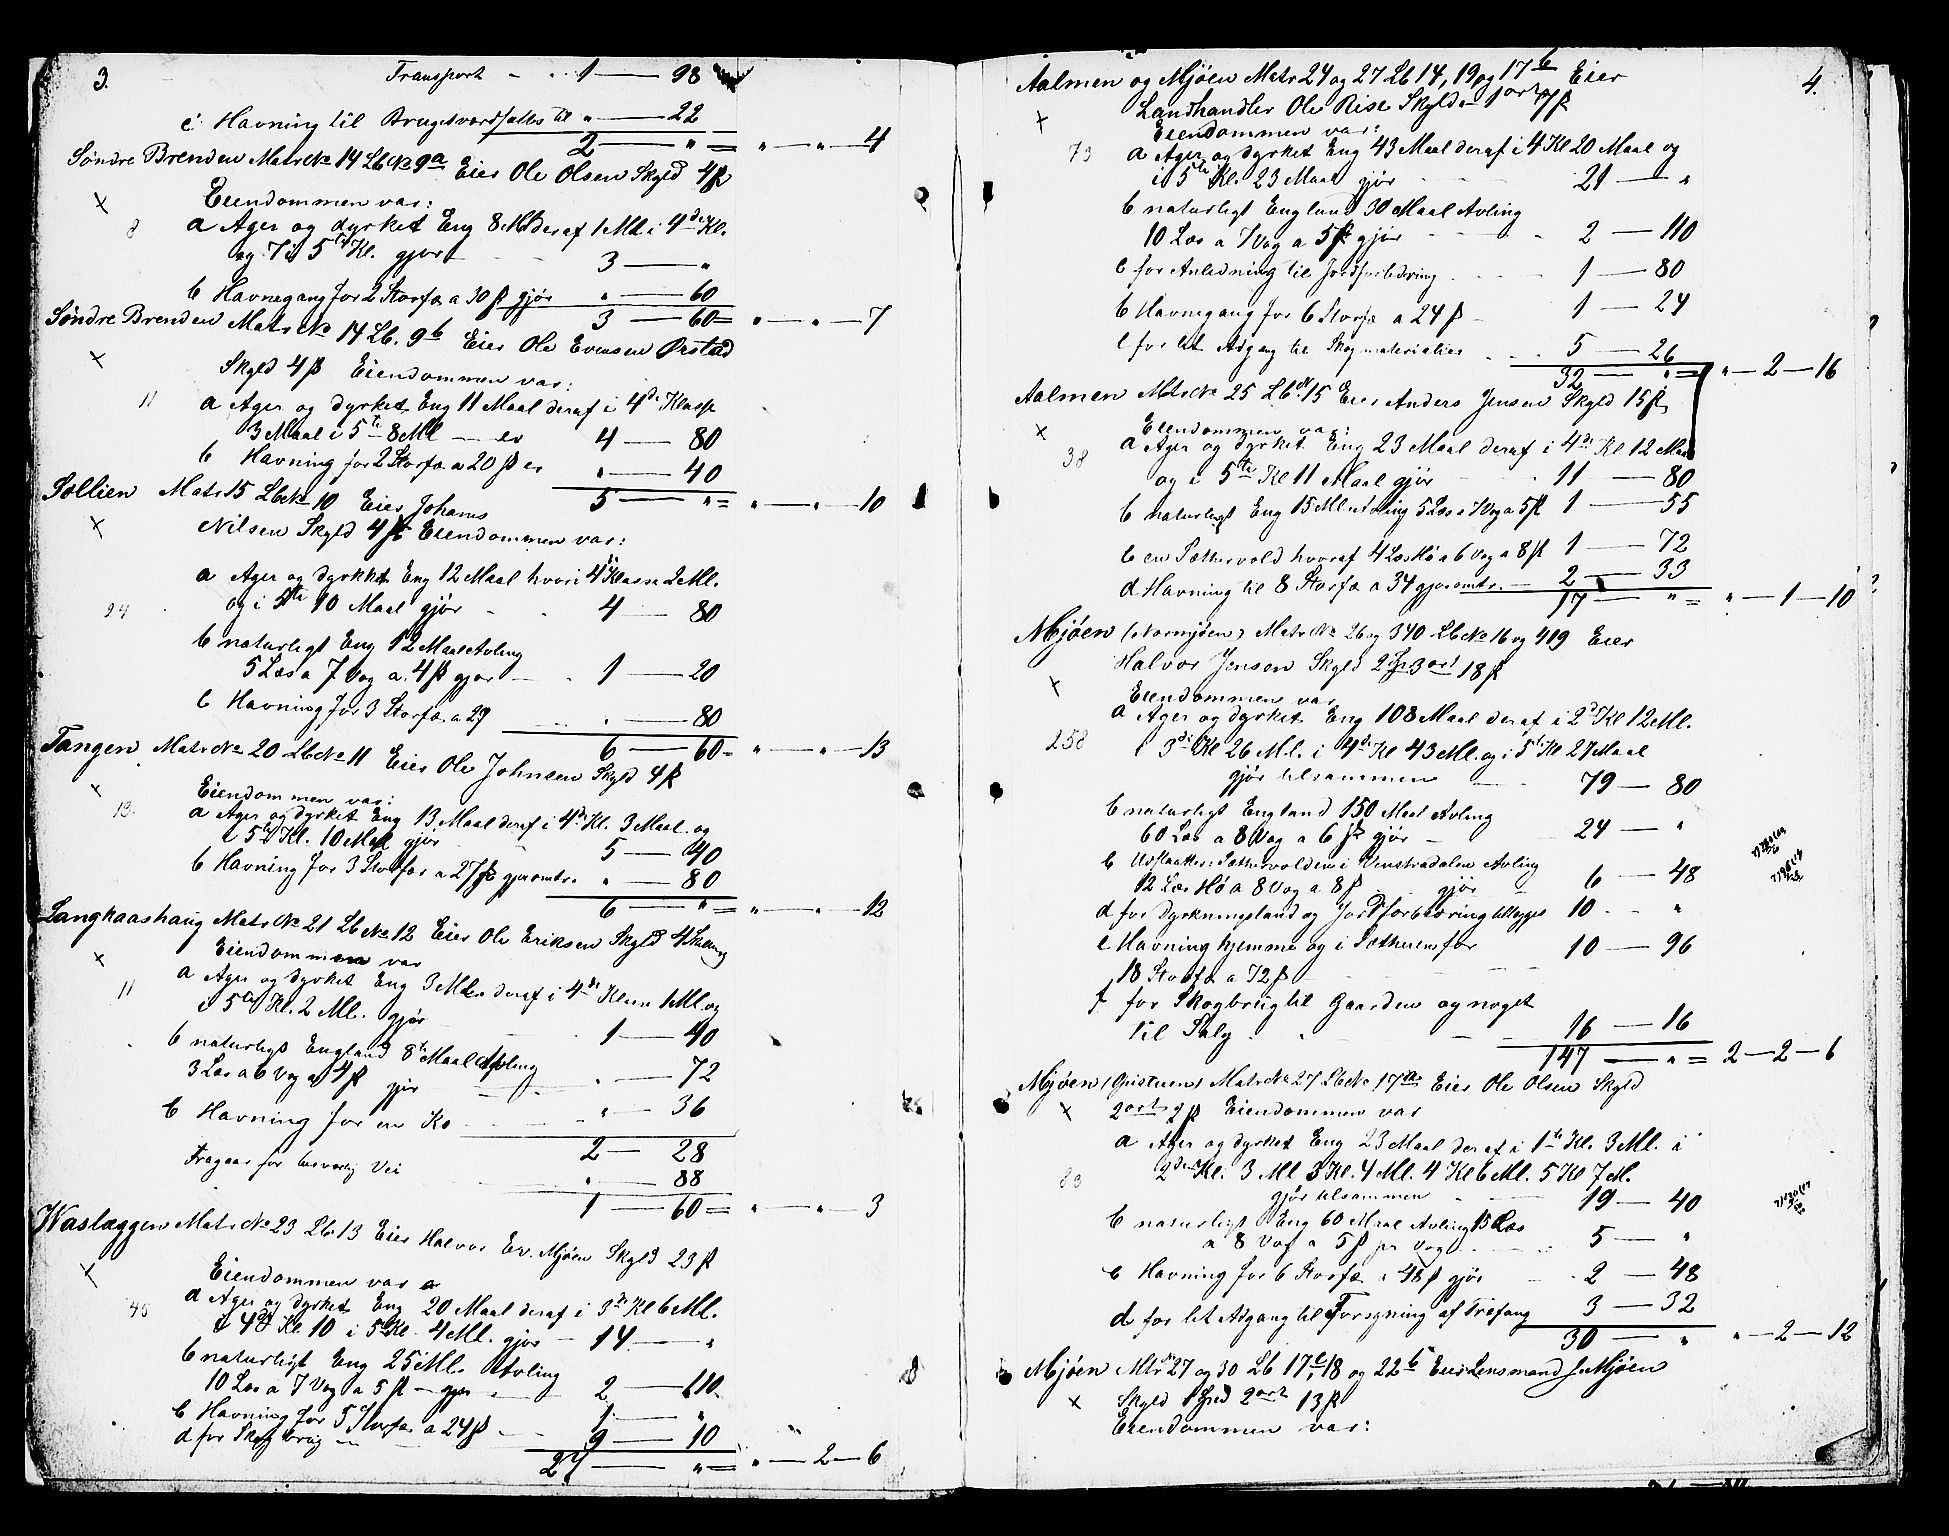 3.
Transport - " 1 — 98
c Havning til Brugsværdsattes til " — 22
2 — " = " — " — 4
Søndre Brenden Matr No 14 Lb No 9a Eier Ole Olsen Skyld 4 ß
× Eiendommen var:
8 a Ager og dyrket Eng 8 Ml deraf 1 Ml i 4de Kl.
og 7 i 5te Kl. gjør 3 — "
b Havnegang for 2 Storfæ a 30 ß gjør " — 60
3 — 60 = " — " — 7
Søndre Brenden Matr No 14 Lb. 9b Eier Ole Evensen Ørstad
× Skyld 4 ß Eiendommen var:
11 a Ager og dyrket Eng 11 Maal deraf i 4de Klasse
3 Maal i 5te 8 Ml — er 4 — 80
b Havning for 2 Storfæ a 20 ß er " — 40
5 — " = " — " — 10
Sollien Matr 15 Lb No 10 Eier Johannes
× Nilsen Skyld 4 ß Eiendommen var:
a Ager og dyrket Eng 12 Maal hvori 4de Klasse 2 Ml.
24 og i 5te 10 Maal gjør 4 — 80
b naturligt Eng 12 Maal Avling
5 Læs a 7 Vog a 4 ß gjør 1 — 20
c Havning for 3 Storfæ a 29 " — 80
6 — 60 = " — " — 13
Tangen Matr No 20 Lb No 11 Eier Ole Johnsen Skyld 4 ß
× Eiendommen var:
13. a Ager og dyrket Eng 13 Maal deraf i 4de Kl. 3 Maal og
i 5te Kl. 10 Maal gjør 5 — 40
b Havning for 3 Storfæ a 27 ß gjør omtr. " — 80
6 — " = " — " — 12
Langkaashaug Matr No 21 Lb No 12 Eier Ole Eriksen Skyld 4 Skilling
× Eiendommen var
11 a Ager og dyrket Eng 3 Ml deraf i 4de Klasse 1 Ml. og
i 5te Kl. 2 Ml. gjør 1 — 40
b naturligt England 8te Maal Avling
3 Læs a 6 Vog a 4 ß gjør " — 72
c Havning for en Ko " — 36
2 — 28
Fragaar for besværlig Vei " — 88
1 — 60 = " — " — 3
Waslæggen Matr No 23 Lb 13 Eier Halvor Ev. Mjøen Skyld 23 ß
× Eiendommen var
45 a Ager og dyrket Eng 20 Maal deraf i 3de Kl 6 Ml.
i 4de Kl 10 i 5 Kl 4 Ml. gjør — 14 — "
b naturligt Eng 25 Ml. Avling
10 Læs a 7 Vog a 5 ß — gjør 2 — 110
c Havning for 5 Storfæ a 24 ß 1 — "
d for Skogbrug — 9 — 10
27 — " = " — 2 — 6
4.
Aalmen og Mjøen Matr 24 og 27 Lb 14, 19 og 17b Eier
× Landhandler Ole Rise Skyld — 1 ort 7 ß
Eiendommen var:
73 a Ager og dyrket Eng 43 Maal deraf i 4 Kl 20 Maal og
i 5te Kl. 23 Maal gjør 21 — "
b naturligt England 30 Maal Avling
10 Læs a 7 Vog a 5 ß gjør 2 — 110
c for Anledning til Jordforbedring 1 — 80
b Havnegang for 6 Storfæ a 24 ß — 1 — 24
e for let Adgang til Skogmaterialier 5 — 26
32 — " = " — 2 — 16
Aalmen Matr No 25 Lb No 15 Eier Anders Jensen Skyld 15 ß
× Eiendommen var:
38 a Ager og dyrket Eng 23 Maal deraf i 4de Kl 12 Maal
og i 5te Kl 11 Maal gjør 11 — 80
b naturligt Eng 15 Ml Avling 5 Læs a 7 Vog a 5 ß 1 — 55
c en Sættervold hvoraf 4 Læs Hø a 6 Vog a 8 ß 1 — 72
d Havning til 8 Storfæ a 34 gjør omtr. — 2 — 33
17 — " = " — 1 — 10
Mjøen (Normjøen) Matr No 26 og 340 Lb No 16 og 419 Eier
Halvor Jensen Skyld 2 3 ort 18 ß
× Eiendommen var
a Ager og dyrket Eng 108 Maal deraf i 2d Kl 12 Ml.
258 i 3de Kl 26 Ml. i 4de Kl 43 Ml. og i 5t Kl 27 Maal
gjør tilsammen 79 — 80
b naturligt England 150 Maal Avling
60 Læs a 8 Vog a 6 ß gjør — 24 — "
c Udslaatter: Sættervolden i Venstradalen Avling
12 Læs Hø a 8 Vog a 8 ß gjør 6 — 48
d for Dyrkningsland og Jordforbedring tillægges 10 — "
e Havning hjemme og i Sætheren for 10 — 96
18 Storfæ a 72 ß
f for Skogbrug til Gaarden og noget
til Salg 16 — 16
147 — " = 2 — 2 — 6
Mjøen (Gristuen) Matr No 27 Lb No 17a Eier Ole Olsen Skyld
× 2 ort 2 ß Eiendommen var
a Ager og dyrket Eng 23 Maal deraf i 1te Kl. 3 Ml. i
83 2den Kl. 3 Ml 3 Kl. 4 Ml. 4 Kl 6 Ml. 5 Kl 7 M.
gjør tilsammen 19 — 40
b naturligt Eng 60 Maal Avling 15 Læs
a 8 Vog a 5 ß pr Vog 5 — "
c Havning for 6 Storfæ a 48 ß gjør 2 — 48
d for let Adgang til Forsyning af Træfang 3 — 32
30 — " " — 2 — 12
Mjøen Mtr No 27 og 30 Lb 17c, 18 og 22b Eier Lensmand J. Mjøen
× Skyld 1 2 ort 13 ß
Eiendommen var: